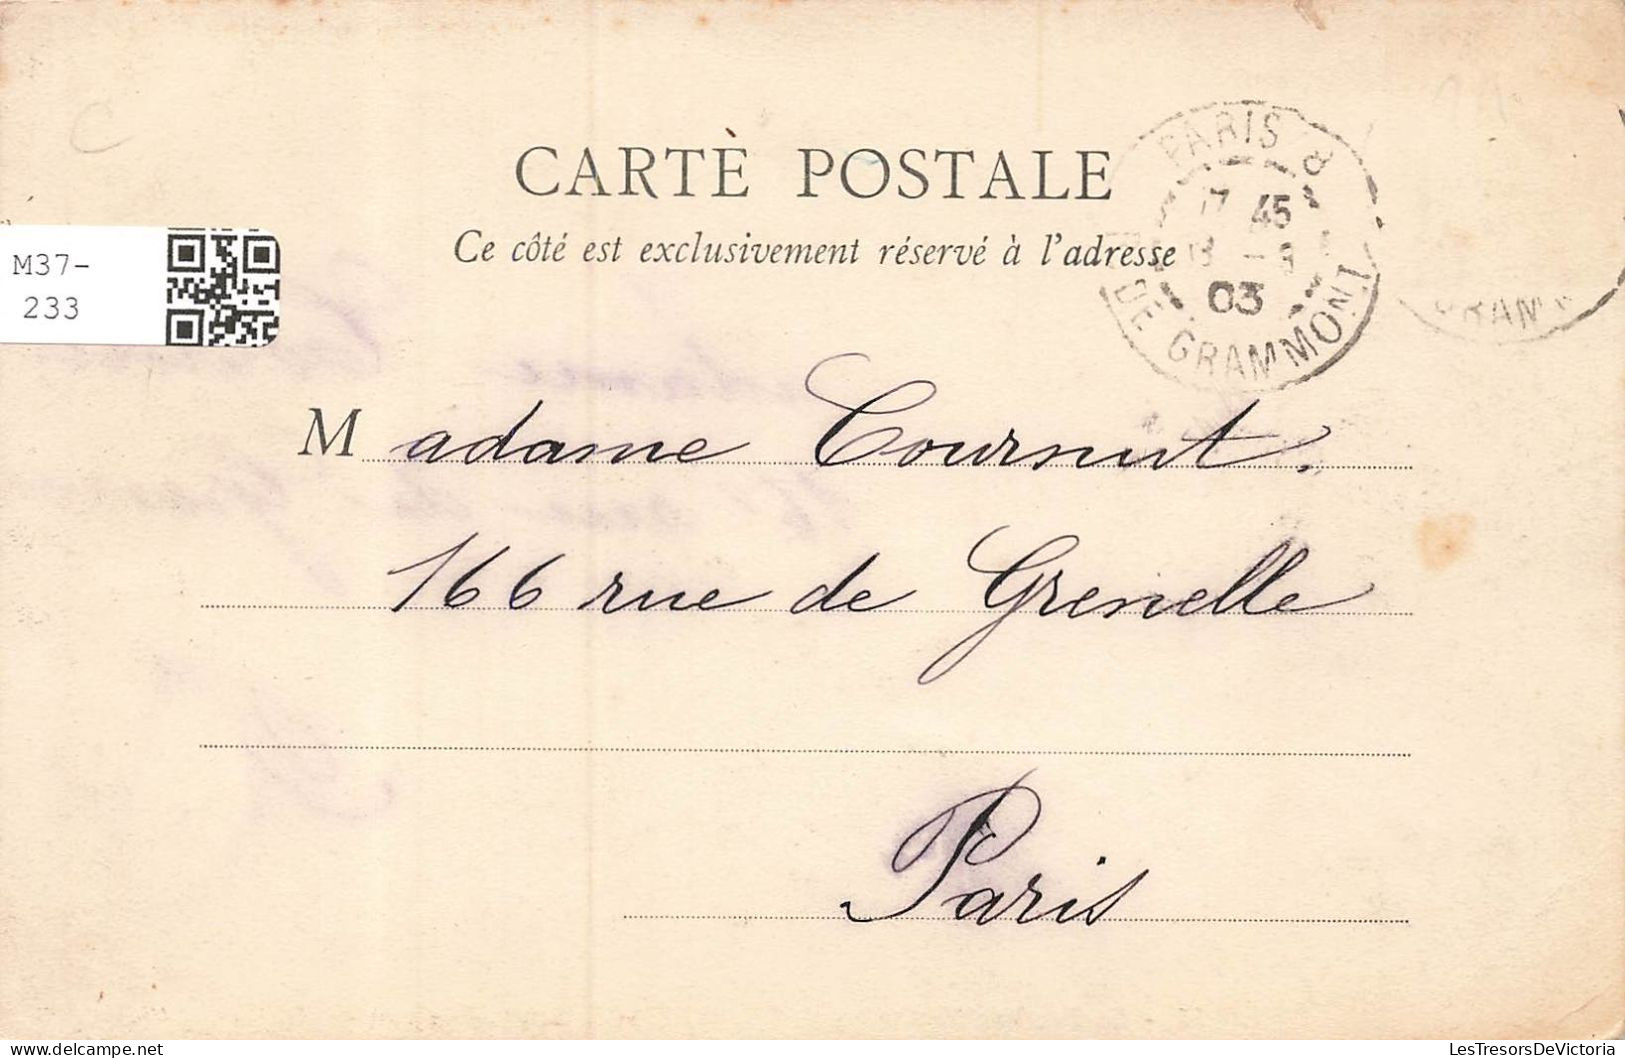 CARTE POSTALE
Ce côté est exclusivement réservé à l'adresse
M37-
233
PARIS 8
45
03
DE GRAMMONT
Madame Cournut.
166 rue de Grenelle
Paris
delcampe.net
LesTresorsDeVictoria